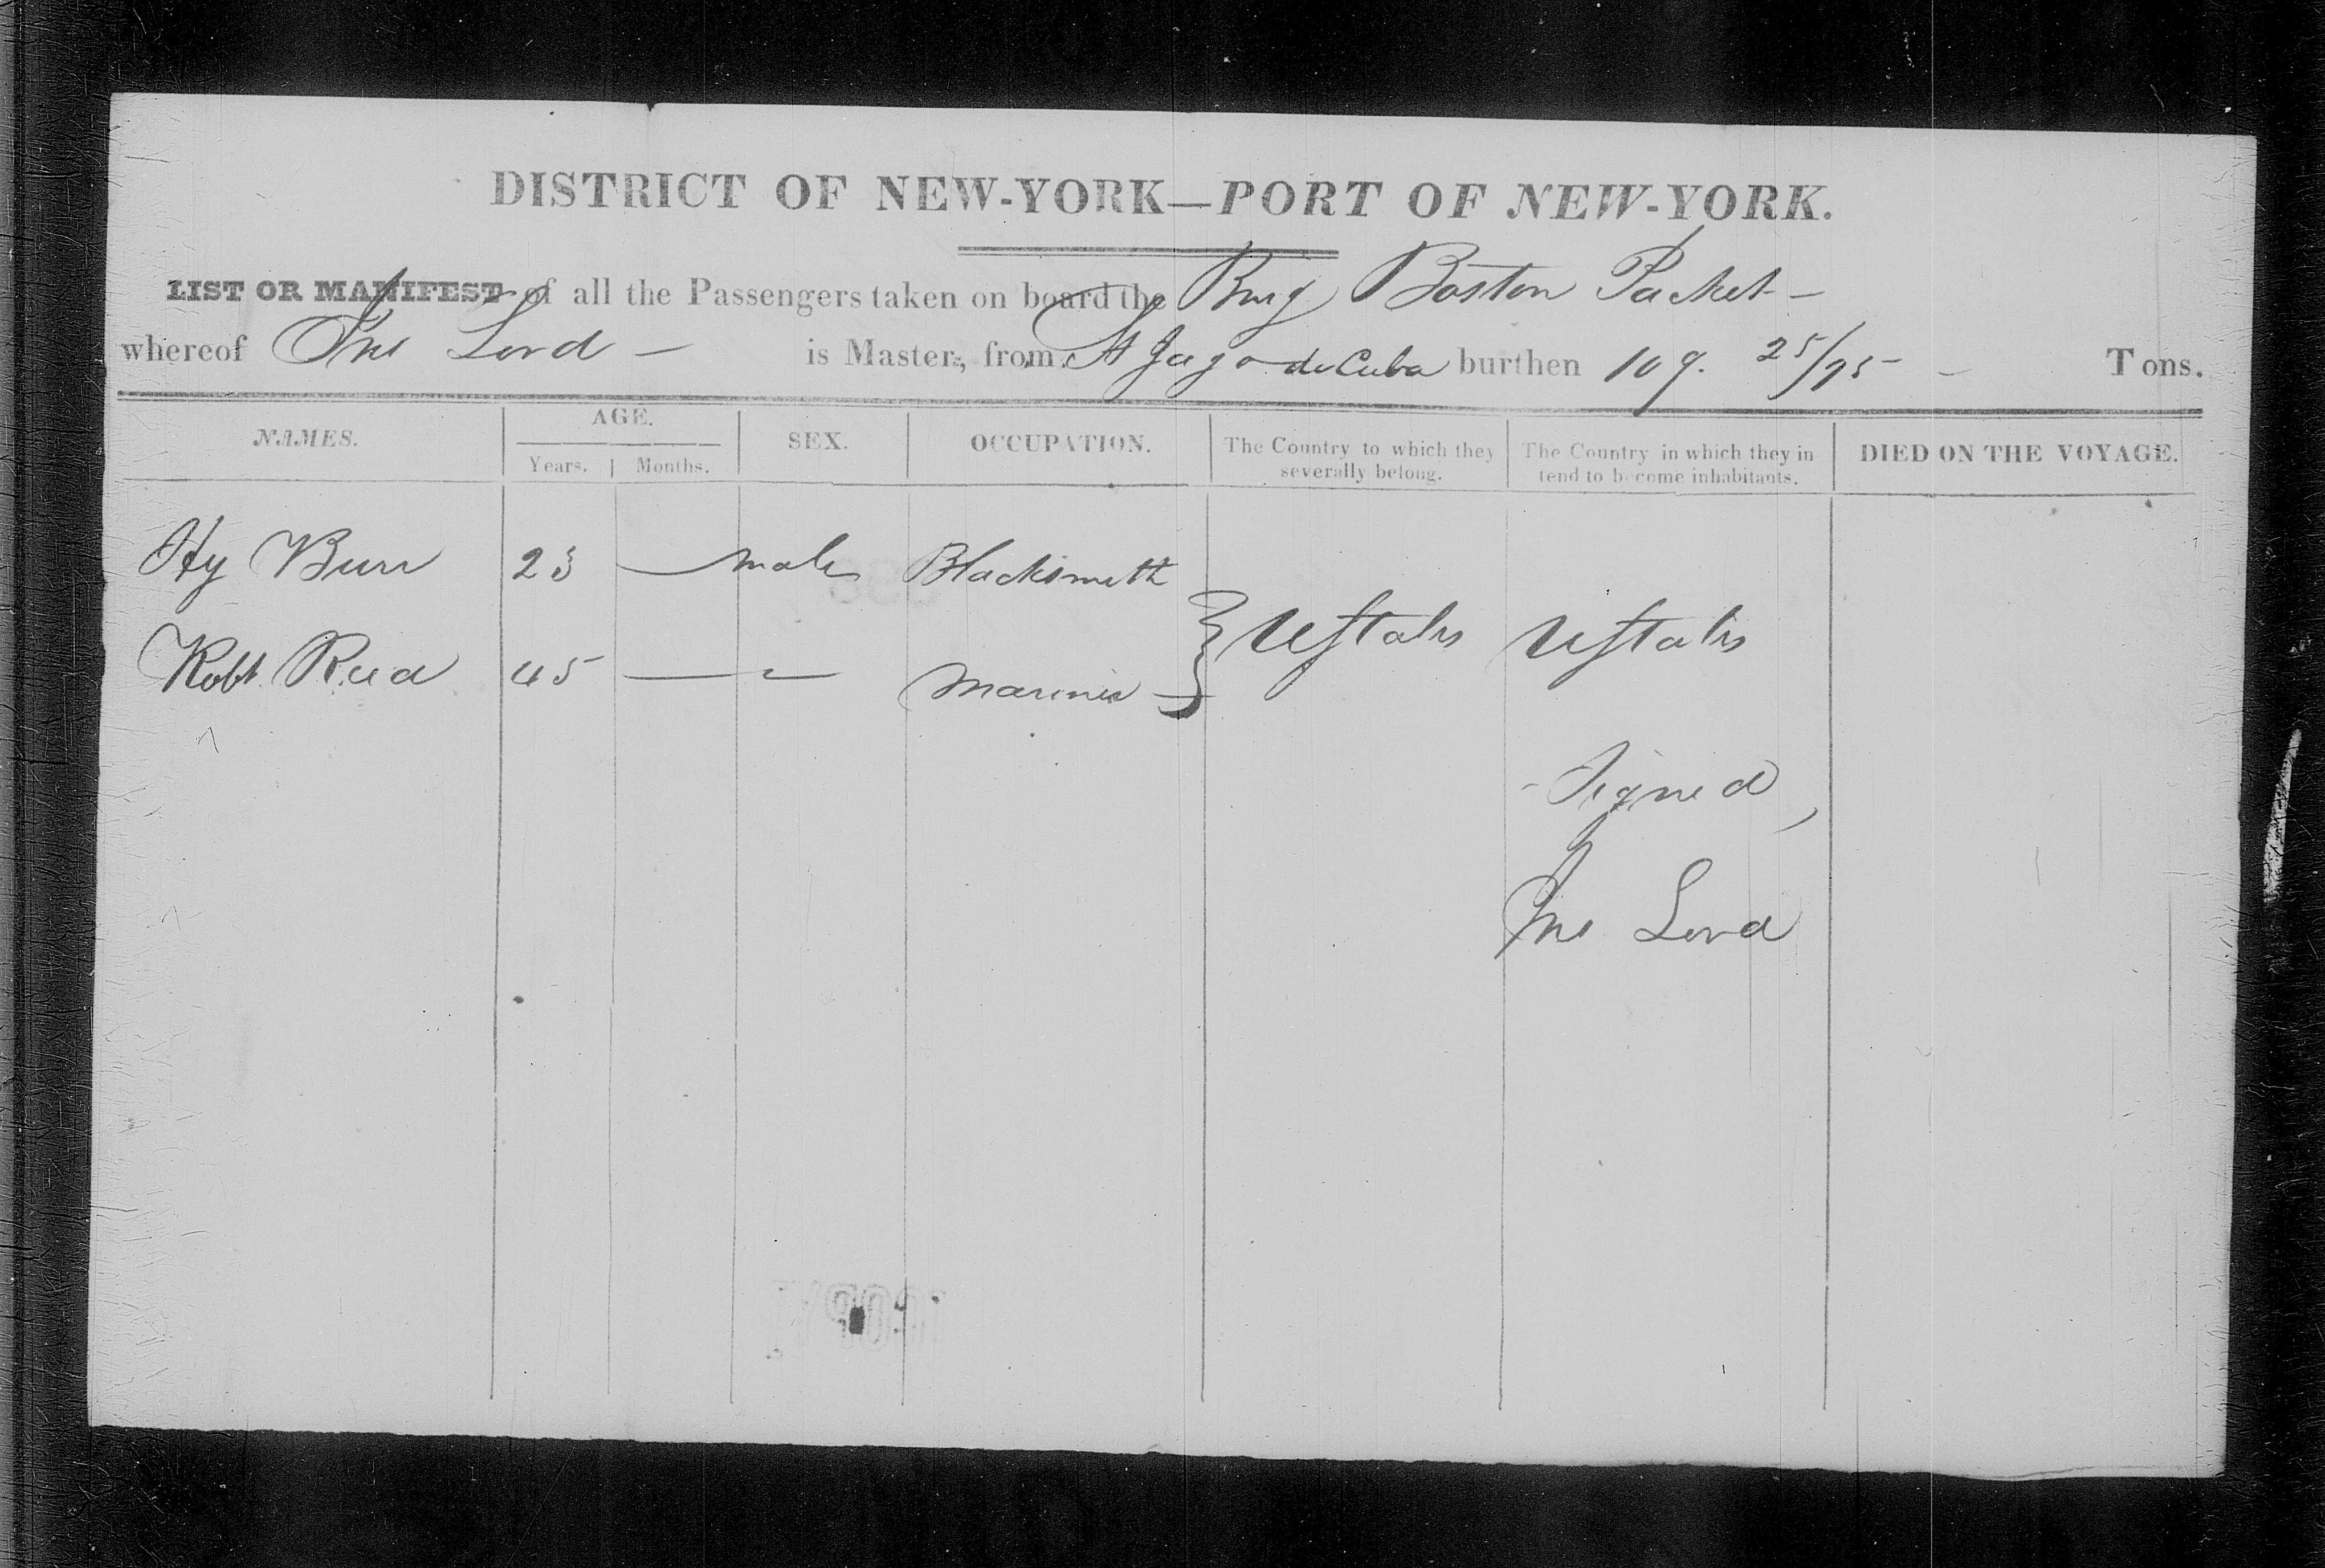 DISTRICT OF NEW-YORK—PORT OF NEW-YORK.
LIST OR MANIFEST of all the Passengers taken on board the Brig Boston Packet —
whereof Jno Lord — is Master, from St Jago de Cuba burthen 109. 25/95 — Tons.
NAMES. AGE. SEX. OCCUPATION. The Country to which they severally belong. The Country in which they in tend to become inhabitants. DIED ON THE VOYAGE.
Years. Months.
Hy Burr 23 — male Blacksmith
UStates UStates
Robt Reed 45 — — Mariner
Signed,
Jno Lord
COPY